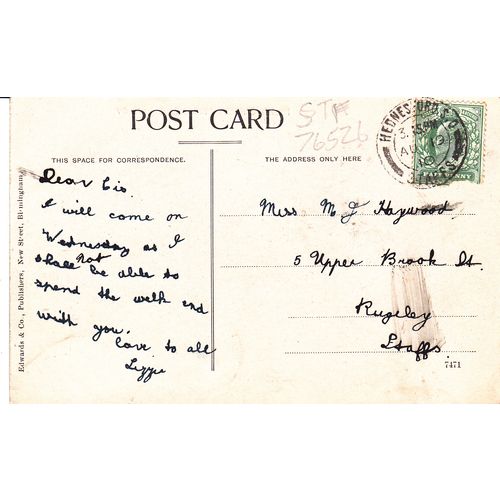 POST CARD
STF
76526
HEDNESFORD S.O
3.15PM
AU 9
10
STAFFS
THIS SPACE FOR CORRESPONDENCE.
THE ADDRESS ONLY HERE
Dear Cis.
I will come on
Wednesday as I
shall not be able to
spend the welk end
with you.
love to all
Lizzie
Miss M J Haywood
5 Upper Brook St.
Rugeley
Staffs.
7471
Edwards & Co., Publishers, New Street, Birmingham.